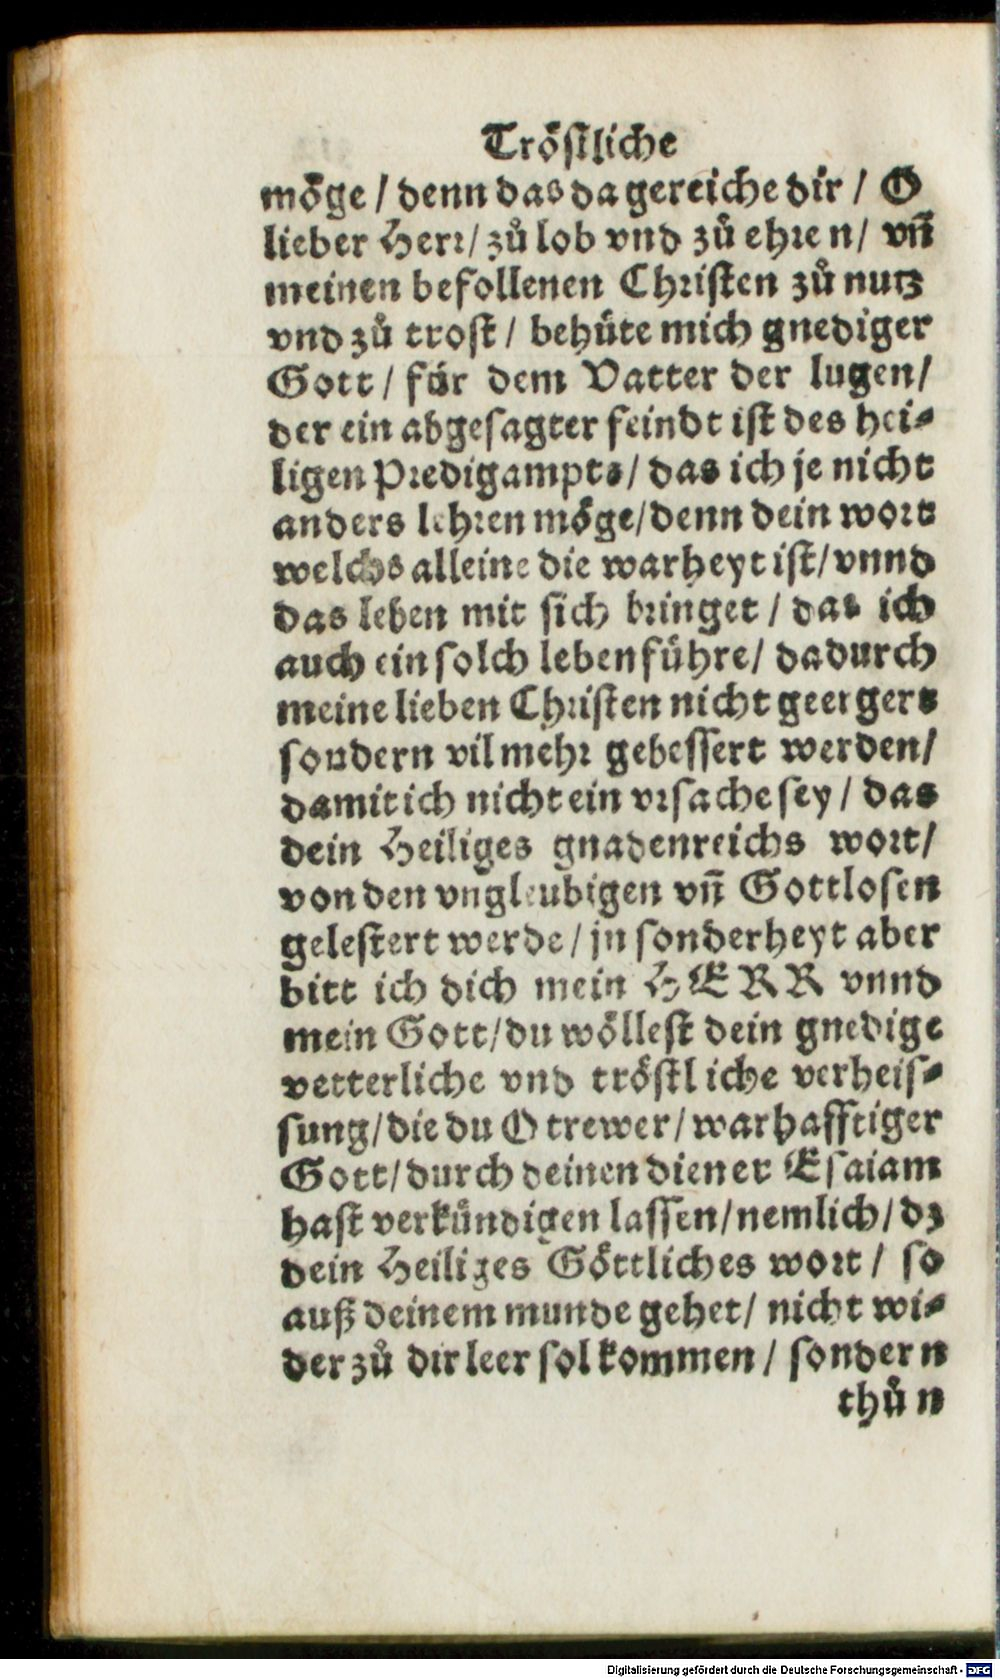 Tröstliche
möge / denn das da gereiche dir / O
lieber Herr / zů lob vnd zů ehren / vñ
meinen befollenen Christen zů nutz
vnd zů trost / behüte mich gnediger
Gott / für dem Vatter der lugen /
der ein abgesagter feindt ist des hei-
ligen Predigampts / das ich je nicht
anders lehren möge / denn dein wort
welchs alleine die warheyt ist / vnnd
das leben mit sich bringet / das ich
auch ein solch leben führe / dadurch
meine lieben Christen nicht geergert
sondern vil mehr gebessert werden /
damit ich nicht ein vrsache sey / das
dein Heiliges gnadenreichs wort /
von den vngleubigen vñ Gottlosen
gelestert werde / jn sonderheyt aber
bitt ich dich mein HERR vnnd
mein Gott / du wöllest dein gnedige
vetterliche vnd tröstliche verheis-
sung / die du O trewer / warhafftiger
Gott / durch deinen diener Esaiam
hast verkündigen lassen / nemlich / dz
dein Heiliges Göttliches wort / so
auß deinem munde gehet / nicht wi-
der zů dir leer sol kommen / sondern
thůn
Digitalisierung gefördert durch die Deutsche Forschungsgemeinschaft - DFG